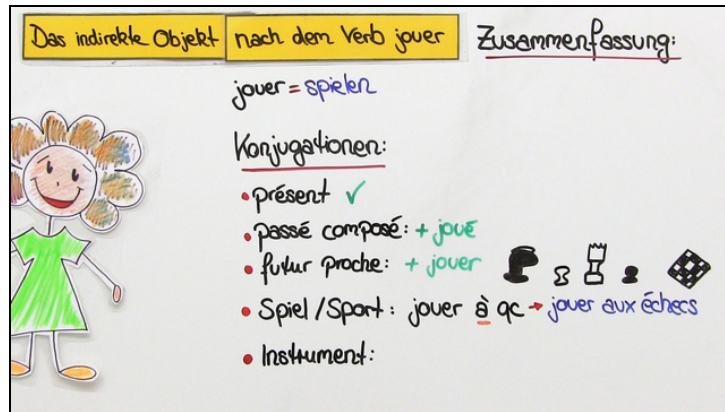 Das indirekte Objekt nach dem Verb jouer Zusammenfassung:
jouer = spielen
Konjugationen:
• présent ✓
• passé composé: + joué
• futur proche: + jouer
• Spiel/Sport: jouer à qc → jouer aux échecs
• Instrument: